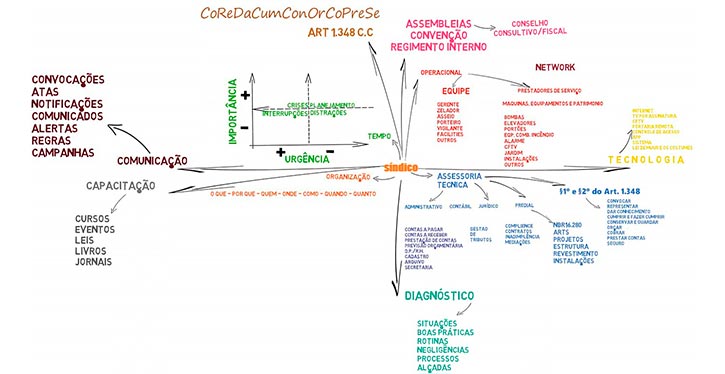 CoReDaCumConOrCoPreSe
ART 1.348 C.C
ASSEMBLEIAS
CONVENÇÃO
REGIMENTO INTERNO
CONSELHO
CONSULTIVO/FISCAL
CONVOCAÇÕES
ATAS
NOTIFICAÇÕES
COMUNICADOS
ALERTAS
REGRAS
CAMPANHAS
COMUNICAÇÃO
IMPORTÂNCIA
+
-
CRISES PLANEJAMENTO
INTERRUPÇÕES DISTRAÇÕES
+ -
URGÊNCIA
TEMPO
OPERACIONAL
EQUIPE
GERENTE
ZELADOR
ASSEIO
PORTEIRO
VIGILANTE
FACILITIES
OUTROS
NETWORK
PRESTADORES DE SERVIÇO
MAQUINAS, EQUIPAMENTOS E PATRIMONIO
BOMBAS
ELEVADORES
PORTÕES
EQP. COMB. INCÊNDIO
ALARME
CFTV
JARDIM
INSTALAÇÕES
OUTROS
INTERNET
CFTV
PORTARIA REMOTA
CONTROLE DE ACESSO
APP
SISTEMA
TECNOLOGIA
síndico
CAPACITAÇÃO
CURSOS
EVENTOS
LEIS
LIVROS
JORNAIS
ORGANIZAÇÃO
O QUE - POR QUE - QUEM - ONDE - COMO - QUANDO - QUANTO
ASSESSORIA
TECNICA
ADMINISTRATIVO
CONTAS A PAGAR
CONTAS A RECEBER
PRESTAÇÃO DE CONTAS
PREVISÃO ORÇAMENTÁRIA
D.P./R.H.
CADASTRO
ARQUIVO
SECRETARIA
CONTÁBIL
GESTÃO
DE
TRIBUTOS
JURÍDICO
COMPLIENCE
CONTRATOS
INADIMPLÊNCIA
MEDIAÇÕES
PREDIAL
NBR16.280
ARTS
PROJETOS
ESTRUTURA
REVESTIMENTO
INSTALAÇÕES
§1º e §2º do Art. 1.348
CONVOCAR
REPRESENTAR
DAR CONHECIMENTO
CUMPRIR E FAZER CUMPRIR
CONSERVAR E GUARDAR
ORÇAR
COBRAR
PRESTAR CONTAS
SEGURO
DIAGNÓSTICO
SITUAÇÕES
BOAS PRÁTICAS
ROTINAS
NEGLIGÊNCIAS
PROCESSOS
ALÇADAS